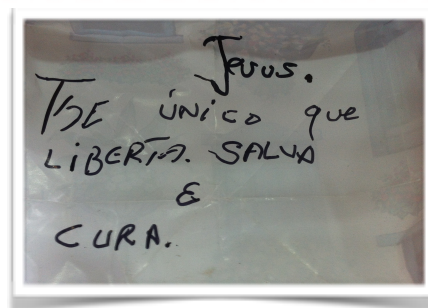 Jesus.
único que
LIBERTA. SALVA
E
CURA.